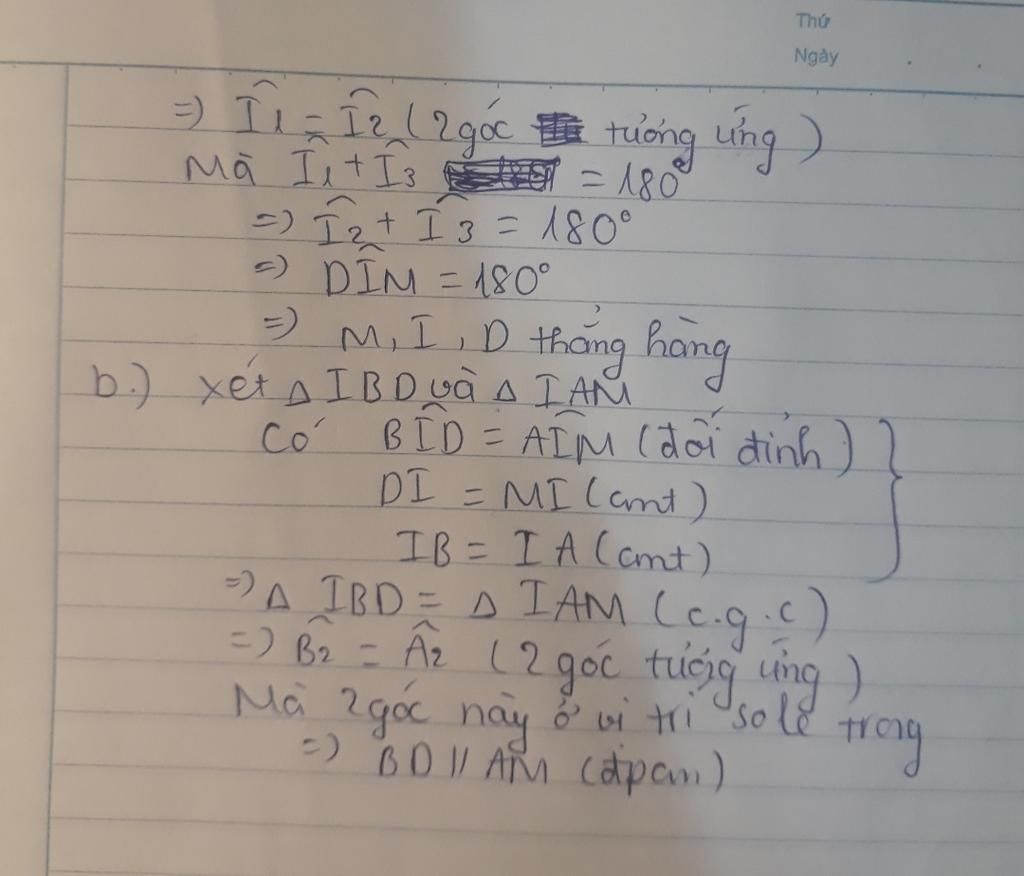 Thứ
Ngày
=) Î1 = Î2 ( 2 góc tương ứng )
Mà Î1 + Î3 = 180°
=) Î2 + Î3 = 180°
=) DÎM = 180°
=) M, I, D thẳng hàng
b.) xét Δ IBD và Δ IAM
Có BÎD = AÎM (đối đỉnh)
DI = MI (cmt)
IB = IA (cmt)
=) Δ IBD = Δ IAM (c.g.c)
=) B̂2 = Â2 ( 2 góc tương ứng )
Mà 2 góc này ở vị trí so le trong
=) BD // AM (đpcm)